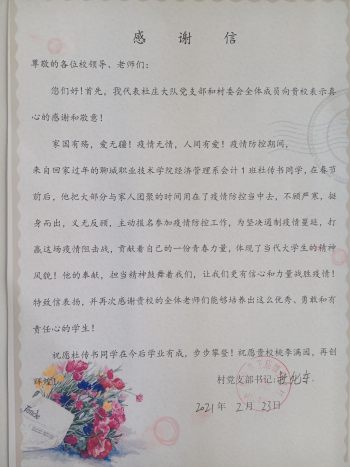 感谢信
尊敬的各位校领导、老师们：
您们好！首先，我代表杜庄大队党支部和村委会全体成员向贵校表示真
心的感谢和敬意！
家国有殇，爱无疆！疫情无情，人间有爱！疫情防控期间，
来自回家过年的聊城职业技术学院经济管理系会计1班杜传书同学，在春节
前后，他把大部分与家人团聚的时间用在了疫情防控当中去，不顾严寒，挺
身而出，义无反顾，主动报名参加疫情防控工作，为坚决遏制疫情蔓延，打
赢这场疫情阻击战，贡献着自己的一份青春力量，体现了当代大学生的精神
风貌！他的奉献，担当精神鼓舞着我们，让我们更有信心和力量战胜疫情！
特致信表扬，并再次感谢贵校的全体老师们能够培养出这么优秀、勇敢和有
责任心的学生！
祝愿杜传书同学在今后学业有成，步步攀登！祝愿贵校桃李满园，再创
辉煌！
村党支部书记：
2021年2月23日